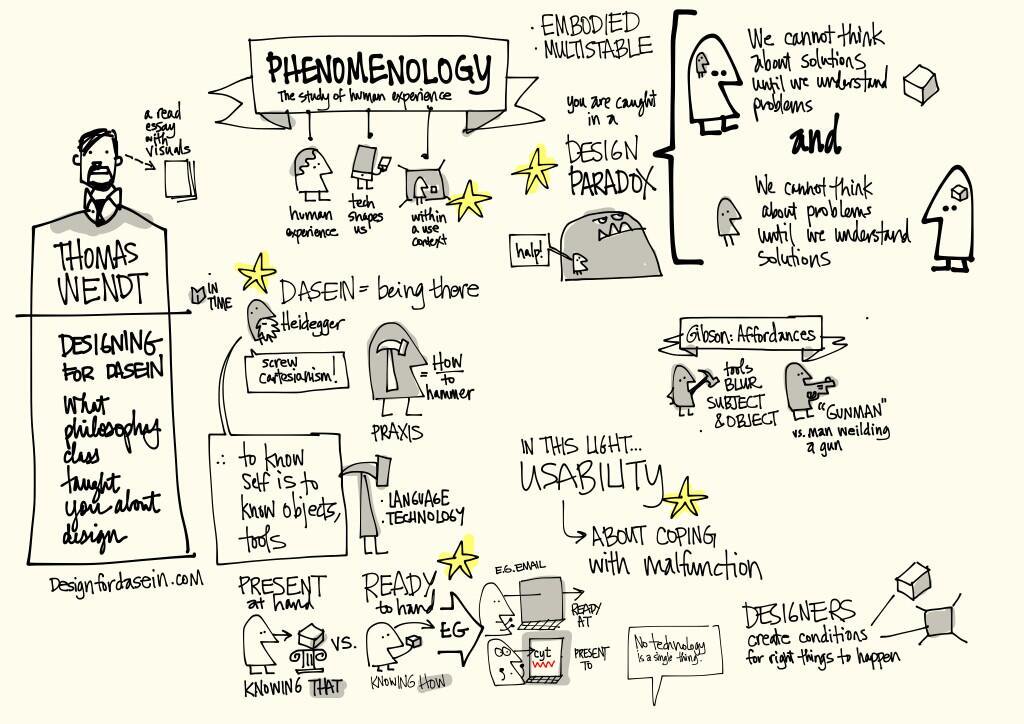 a read
essay
with
visuals
THOMAS
WENDT
DESIGNING
FOR DASEIN
What
philosophy
class
taught
you about
design
Designfordasein.com
PHENOMENOLOGY
The study of human experience
human
experience
tech
shapes
us
within
a use
context
· EMBODIED
· MULTISTABLE
you are caught
in a
DESIGN
PARADOX
halp!
We cannot think
about solutions
until we understand
problems
and
We cannot think
about problems
until we understand
solutions
IN
TIME
DASEIN = being there
Heidegger
screw
Cartesianism!
= HOW
to
hammer
PRAXIS
∴ to know
self is to
know objects,
tools
· LANGUAGE
· TECHNOLOGY
Gibson: Affordances
tools
BLUR
SUBJECT
& OBJECT
"GUNMAN"
vs. man weilding
a gun
IN THIS LIGHT...
USABILITY
ABOUT COPING
with malfunction
PRESENT
at hand
VS.
KNOWING THAT
READY
to hand
KNOWING HOW
EG
E.G. EMAIL
READY
AT
cyt
PRESENT
TO
No technology
is a single thing.
DESIGNERS
create conditions
for right things to happen